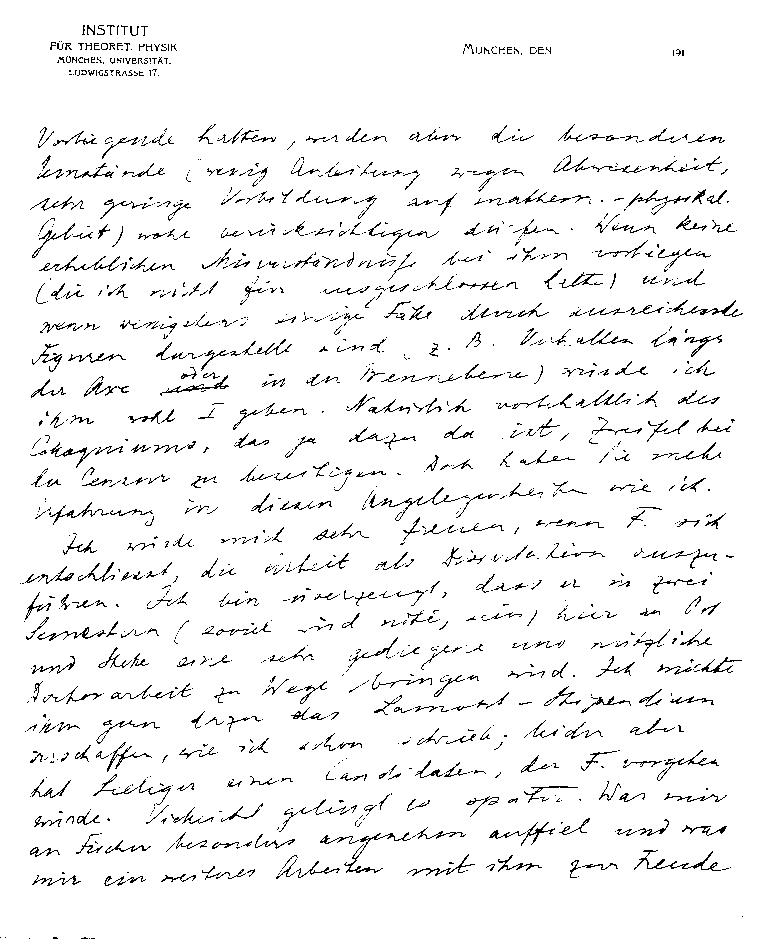 INSTITUT
FÜR THEORET. PHYSIK
MÜNCHEN, UNIVERSITÄT,
LUDWIGSTRASSE 17.
MÜNCHEN, DEN 191
Vorliegende halten, werden aber die besonderen
Umstände (wenig Anleitung wegen Abwesenheit,
sehr geringe Vorbildung auf mathem.-physikal.
Gebiet) wohl berücksichtigen dürfen. Wenn keine
erheblichen Misverständnisse bei ihm vorliegen
(die ich nicht für ausgeschlossen halte) und
wenn wenigstens einige Fälle durch ausreichende
Figuren dargestellt sind (z. B. Verhalten längs
der Axe und oder in der Brennebene) würde ich
ihm wohl I geben. Natürlich vorbehaltlich des
Colloquiums, das ja dazu da ist, Zweifel bei
der Censur zu beseitigen. Doch haben Sie mehr
Erfahrung in diesen Angelegenheiten wie ich.
Ich würde mich sehr freuen, wenn F. sich
entschliesst, die Arbeit als Dissertation auszu-
führen. Ich bin überzeugt, dass er in zwei
Semestern (soviel wird nötig sein) hier an Ort
und Stelle eine sehr gediegene und nützliche
Doctorarbeit zu Wege bringen wird. Ich möchte
ihm gern dazu das Lamont-Stipendium
verschaffen, wie ich schon schrieb; leider aber
hat Seeliger einen Candidaten, der F. vorgehen
würde. Vielleicht gelingt es später. Was mir
an Fischer besonders angenehm auffiel und was
mir ein weiteres Arbeiten mit ihm zur Freude